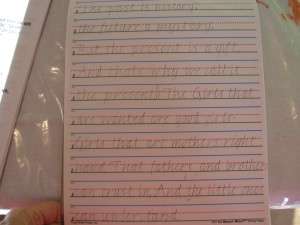 The past is history,
the future a mystery,
But the present is a gift
And that's why we call it
the present. The Girls that
are wanted are good girls
Girls that are mothers right
That fathers and brother
can trust in. And the little ones
can understand